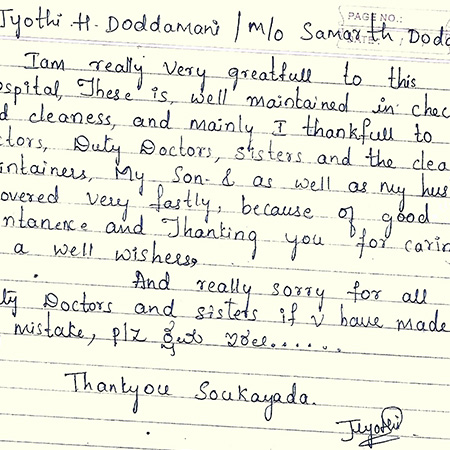 Jyothi H. Doddamani / m/o Samarth Dodda
PAGE NO.:
Iam really very greatfull to this
ospital, These is, well maintained in chec
d cleaness, and mainly I thankfull to
ctors, Duty Doctors, Sisters and the clea
intainers, My Son & as well as my hus
overed very fastly, because of good
ntanence and Thanking you for carin
a well wishers,
And really sorry for all
ty Doctors and sisters if v have made
mistake, plz
Thankyou Soukayada.
Jyothi